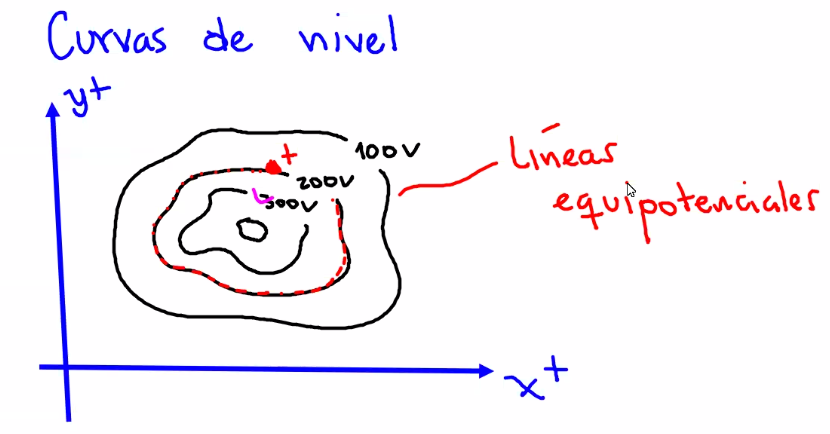 Curvas de nivel
y+
+
100V
200V
300V
Líneas
equipotenciales
x+